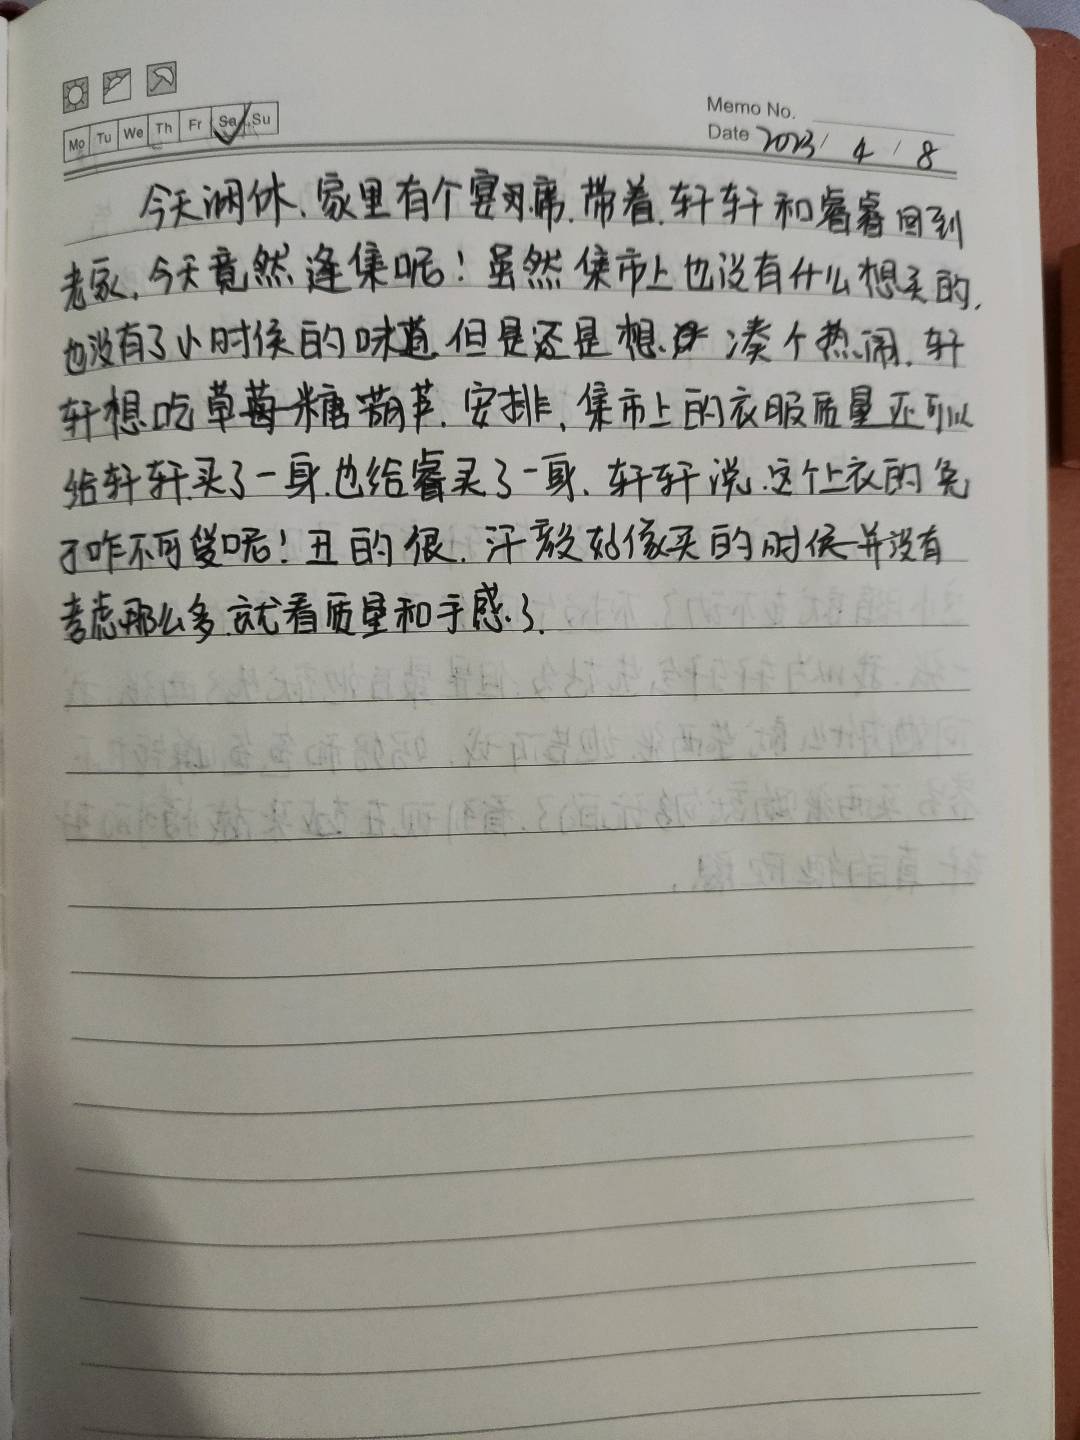 Mo Tu We Th Fr Sa Su
Memo No.
Date 2023 / 4 / 8
今天调休、家里有个宴席.带着.轩轩和睿睿回到
老家.今天竟然逢集呢！虽然集市上也没有什么想买的,
也没有了小时候的味道.但是还是想凑个热闹.轩
轩想吃草莓糖葫芦.安排、集市上的衣服质量还可以
给轩轩买了一身.也给睿买了一身、轩轩说.这个上衣的兔
子咋不可爱呢！丑的很.汗颜 好像买的时候并没有
考虑那么多.就看质量和手感了.